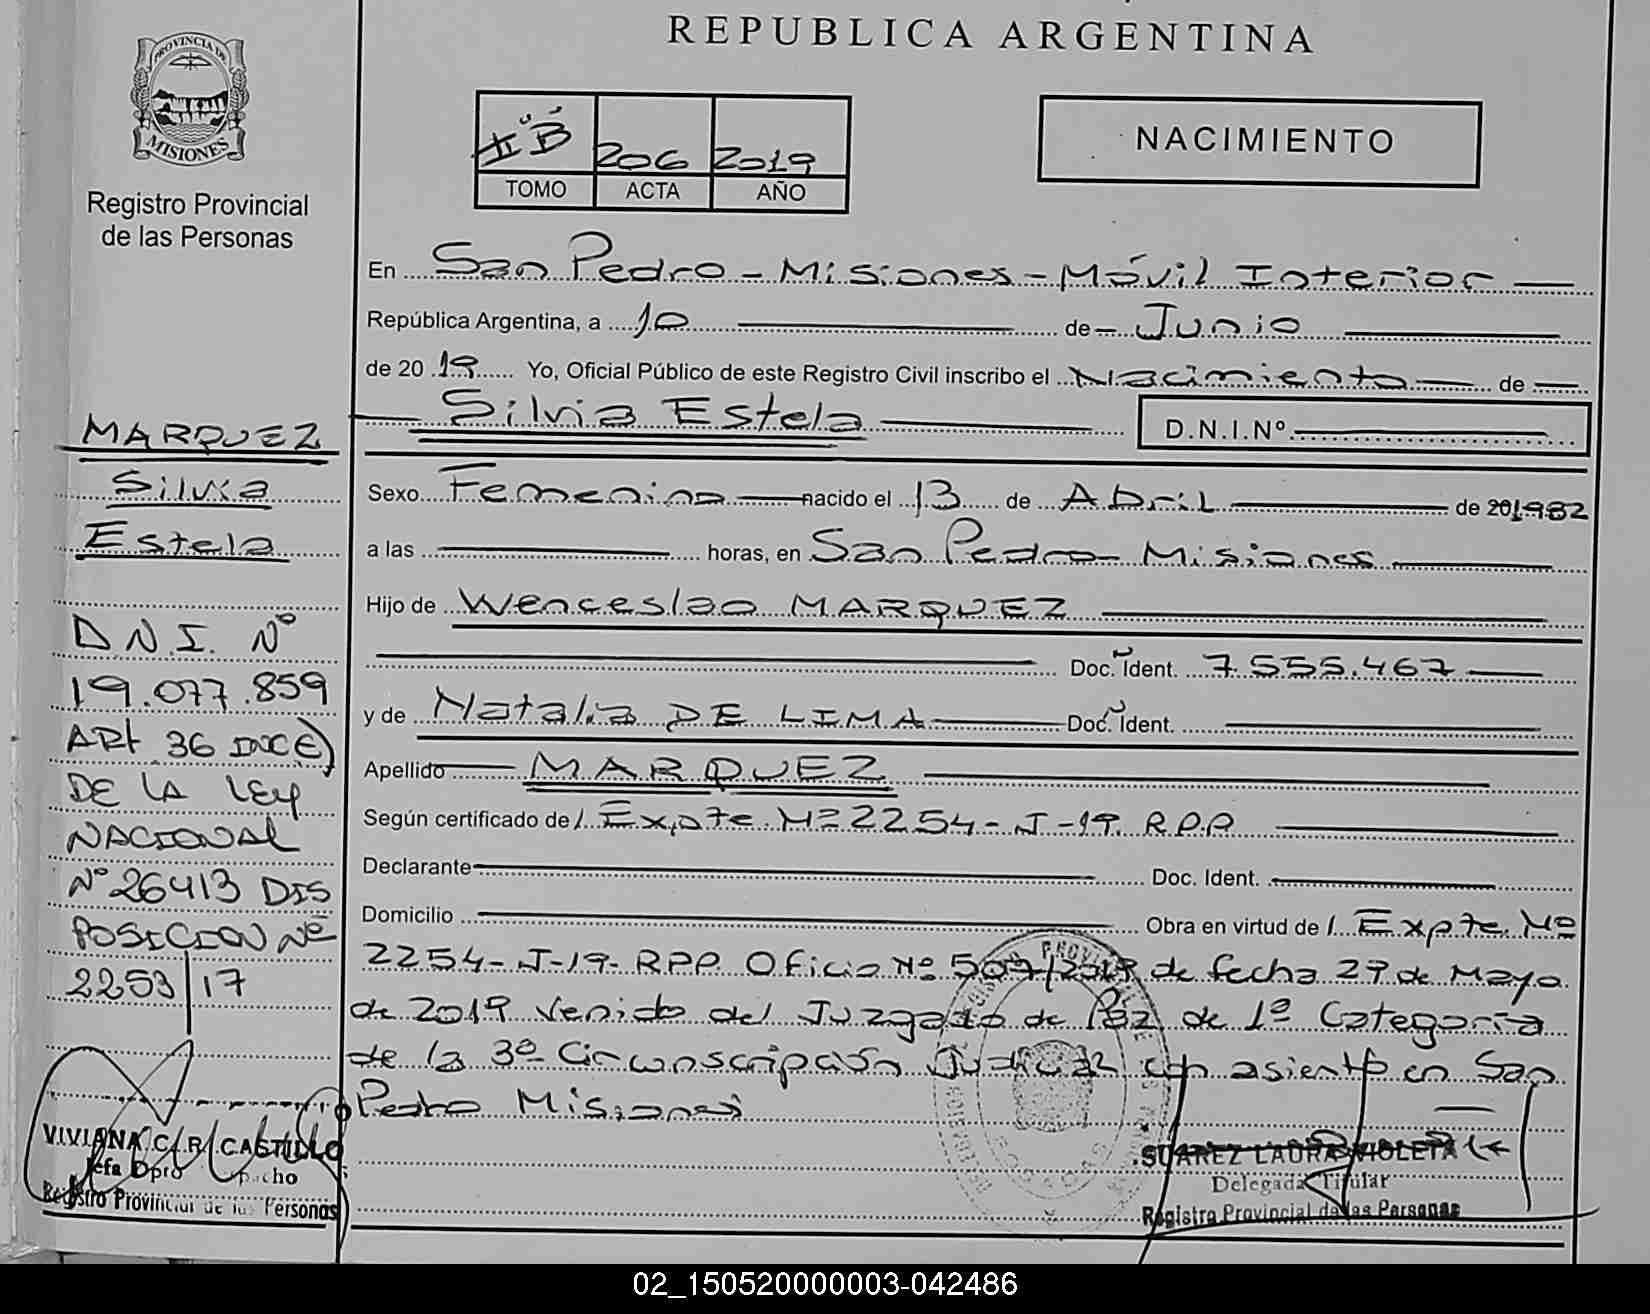 REPUBLICA ARGENTINA
PROVINCIA DE
MISIONES
Registro Provincial
de las Personas
II "B" 206 2019
TOMO ACTA AÑO
NACIMIENTO
En San Pedro - Misiones - Móvil Interior
República Argentina, a 10 de Junio
de 2019 Yo, Oficial Público de este Registro Civil inscribo el Nacimiento de
Silvia Estela D.N.I.Nº
Sexo Femenino nacido el 13 de Abril de 201982
a las horas, en San Pedro - Misiones
Hijo de Wenceslao MARQUEZ
Doc. Ident. 7.555.467
y de Natalia DE LIMA Doc. Ident.
Apellido MARQUEZ
Según certificado de/ Expte Nº 2254-J-19 R.P.P
Declarante Doc. Ident.
Domicilio Obra en virtud de/ Expte Nº
2254-J-19-RPP. Oficio Nº de fecha 29 de Mayo
de 2019 venido del Juzgado de Paz de 1ª Categoría
de la 3ª Circunscripción Judicial con asiento en San
Pedro Misiones
MARQUEZ
Silvia
Estela
D.N.I. Nº
19.077.859
ART 36 INC E)
DE LA LEY
NACIONAL
Nº 26413 DIS
POSICION Nº
2253/17
VIVIANA C. R. CASTILLO
Jefa Dpto
Registro Provincial de las Personas
SUAREZ LAURA VIOLETA
Delegada Titular
Registro Provincial de las Personas
02_150520000003-042486